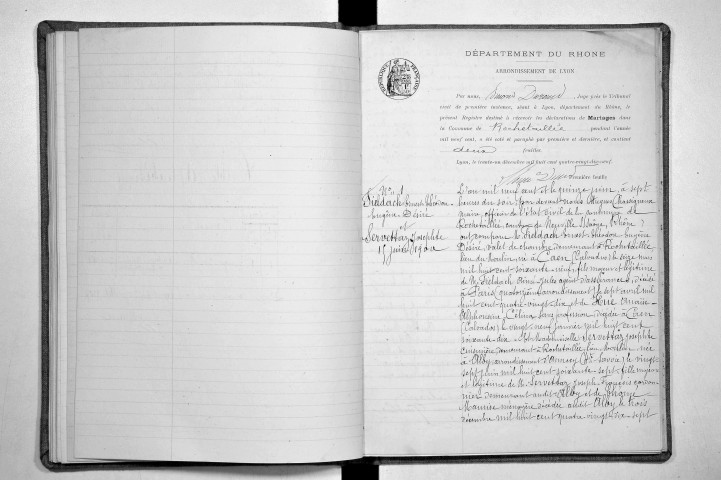 DÉPARTEMENT DU RHÔNE
ARRONDISSEMENT DE LYON
RÉPUBLIQUE FRANÇAISE
Par nous, Juge près le Tribunal
civil de première instance, séant à Lyon, département du Rhône, le
présent Registre destiné à recevoir les déclarations de Mariages dans
la Commune de Rochetaillée pendant l'année
mil neuf cent, a été coté et paraphé par première et dernière, et contient
deux feuilles.
Lyon, le trente-un décembre mil huit cent quatre-vingt-dix-neuf.
première feuille
No 1
Sieldach Ernest Théodore
Eugène Désiré
et
Servettaz Josephte
15 juin 1900
L'an mil neuf cent et le quinze juin, à sept
heures du soir, par devant nous Chassignaux
maire, officier de l'état civil de la commune de
Rochetaillée, canton de Neuville s/Saône, (Rhône)
ont comparu Mr Sieldach Ernest Théodore Eugène
Désiré, valet de chambre, demeurant à Rochetaillée
lieu du Moulin, né à Caen (Calvados) le seize mars
mil huit cent soixante-neuf, fils majeur et légitime
de Mr Sieldach Jules agent d'assurances, décédé
à Paris (quatorzième arrondissement) le sept avril mil
huit cent quatre-vingt-dix et de Marie
Alphonsine Célina, sans profession, décédée à Caen
(Calvados) le vingt-neuf janvier mil huit cent
soixante-dix. Et Mademoiselle Servettaz Josephte
cuisinière, demeurant à Rochetaillée, née
à Alby, arrondissement d'Annecy (Hte Savoie) le vingt-
sept juin mil huit cent soixante-sept, fille majeure
et légitime de Mr Servettaz Joseph François
demeurant audit Alby et de
Maurise ménagère, décédée audit Alby le trois
novembre mil huit cent quatre vingt-sept